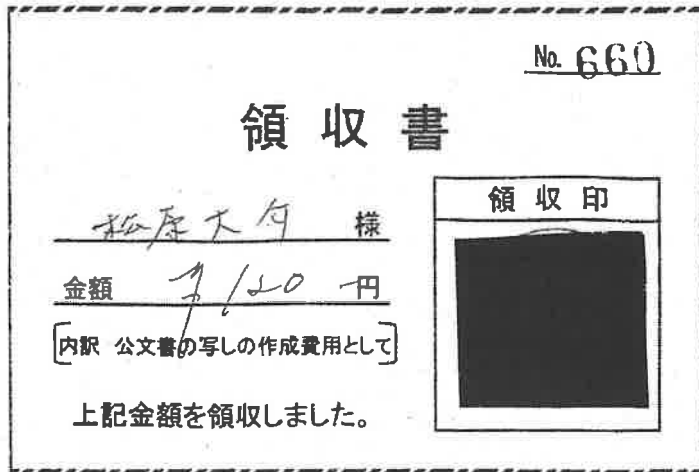 No. 660
領収書
領収印
松原大介 様
金額 ¥120 円
[内訳 公文書の写しの作成費用として]
上記金額を領収しました。